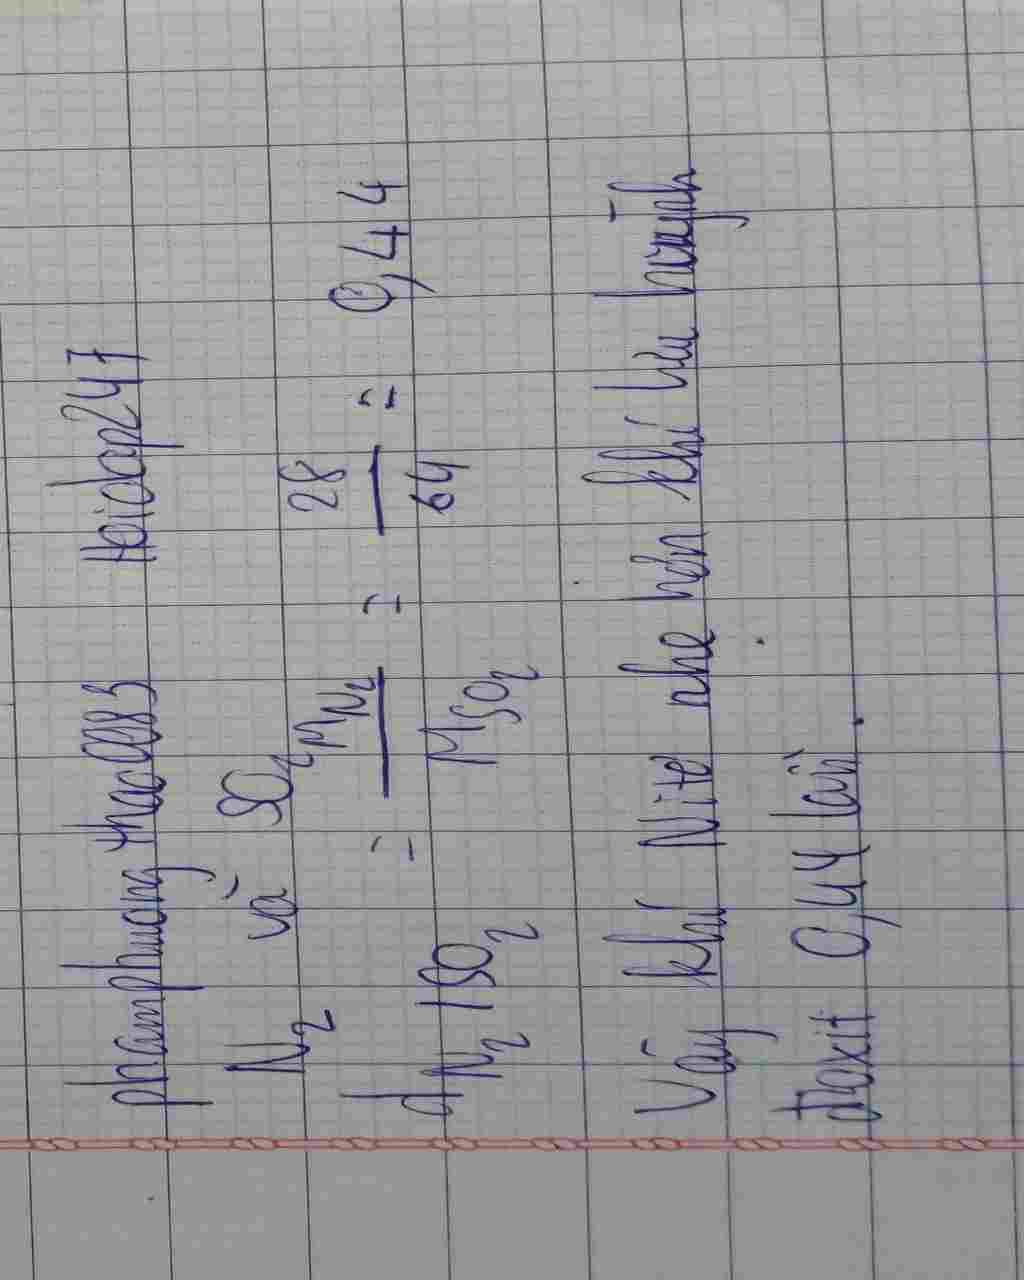 phamphuongthao9883 Hoidap247
N₂ và SO₂
d N₂/SO₂ = M N₂ / M SO₂ = 28 / 64 = 0,44
Vậy khí Nitơ nhẹ hơn khí lưu huỳnh
đioxit 0,44 lần.